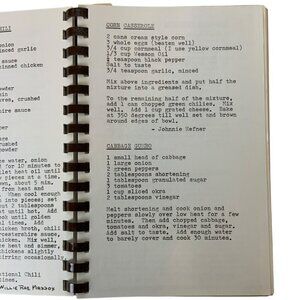 ILI
onion
minced garlic
sauce
minced chicken
crushed
rsauce
water, onion
for 10 minutes to
let heat oil until
chicken at a time
own, about 5 min.
from heat and
. Then cook enough
into pieces; set
out 2 tablespoons
ot until hot. Add
cook until golden
utes. Add
cken broth, chili
orcestershire sauce,
chicken. Mix well,
ce heat and simmer,
il chicken is
irring occasionally.
ational Chili
Times
Willie Rae Maddox
CORN CASSEROLE
2 cans cream style corn
2 whole eggs (beaten well)
3/4 cup cornmeal (I use yellow cornmeal)
1/3 cup Wesson Oil
½ teaspoon black pepper
Salt to taste
3/4 teaspoon garlic, minced
Mix above ingredients and put half the
mixture into a greased dish.
To the remaining half of the mixture,
add ¼ can chopped green chilies. Mix
well. Add 1 cup grated cheese. Bake
at 350 degrees till well set and brown
around edges of bowl.
- Johnnie Hefner
CABBAGE GUMBO
1 small head of cabbage
1 large onion
2 green peppers
2 tablespoons shortening
1 tablespoon granulated sugar
3 tomatoes
1 cup sliced okra
2 tablespoons vinegar
Melt shortening and cook onion and
peppers slowly over low heat for a few
minutes. Then add chopped cabbage,
tomatoes and okra, vinegar and sugar.
Add salt to taste. Add enough water
to barely cover and cook 30 minutes.